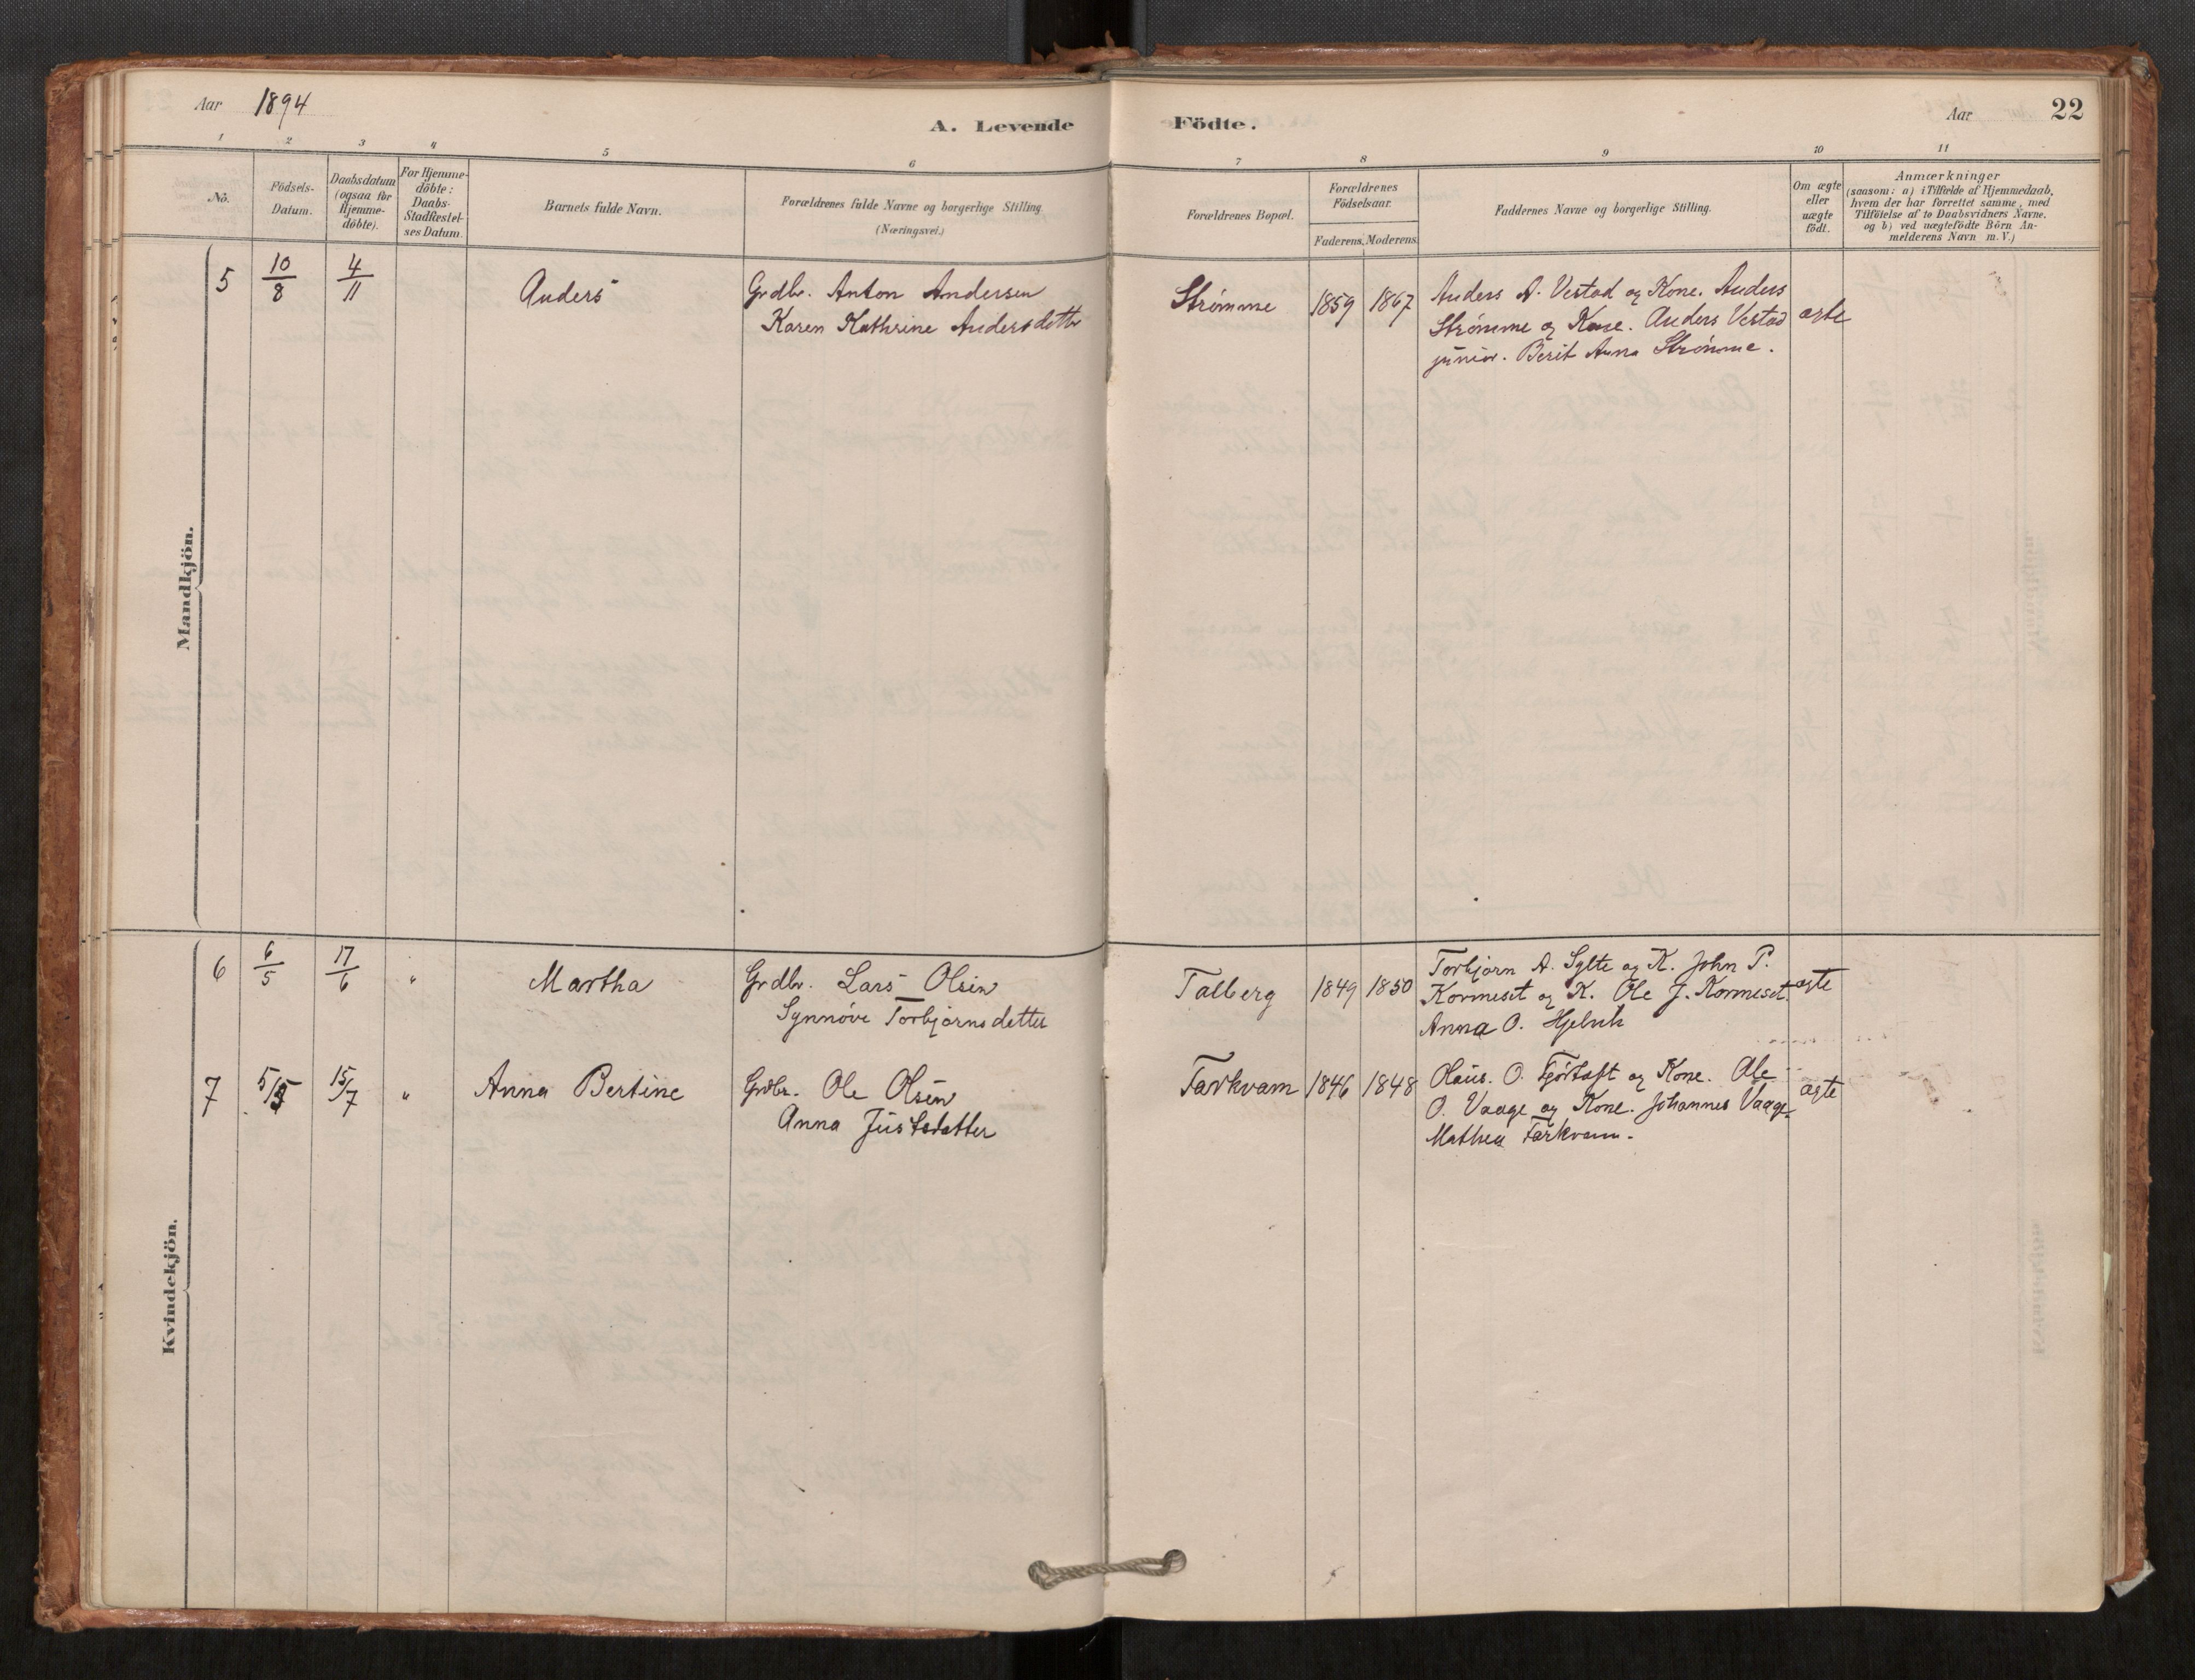 Aar 1894
A. Levende Födte.
Aar 22
1 2 3 4 5 6 7 8 9 10 11
No.
Födsels-Datum.
Daabsdatum (ogsaa for Hjemme-döbte).
For Hjemme-döbte: Daabs-Stadfæstel-ses Datum.
Barnets fulde Navn.
Forældrenes fulde Navne og borgerlige Stilling.
(Næringsvei.)
Forældrenes Bopæl.
Forældrenes Födselsaar.
Faderens. Moderens.
Faddernes Navne og borgerlige Stilling.
Om ægte eller uægte födt.
Anmærkninger
(saasom: a) i Tilfælde af Hjemmedaab,
hvem der har forrettet samme, med
Tilföielse af to Daabsvidners Navne,
og b) ved uægtefödte Börn An-
melderens Navn m. V.)
Mandkjön.
5 10/8 4/11 Anders Grdbr. Anton Andersen Strømme 1859 1867 Anders A. Vestad og Kone. Anders
Karen Kathrine Andersdatter Strømme og Kone. Anders Vestad ægte
junior. Berit Anna Strømme.
Kvindekjön.
6 6/5 17/6 " Martha Grdbr. Lars Olsen Talberg 1849 1850 Torbjørn A. Sylte og K. John P.
Synnøve Torbjørnsdatter Kormeset og K. Ole J. Kormeset. ægte
Anna O. Hjelvik
7 5/5 15/7 " Anna Bertine Grdbr. Ole Olsen Farkvam 1846 1848 Olaus. O. Fjørtoft og Kone. Ole
Anna Justsdatter O. Vaage og Kone. Johannes Vaage. ægte
Mathea Farkvam.